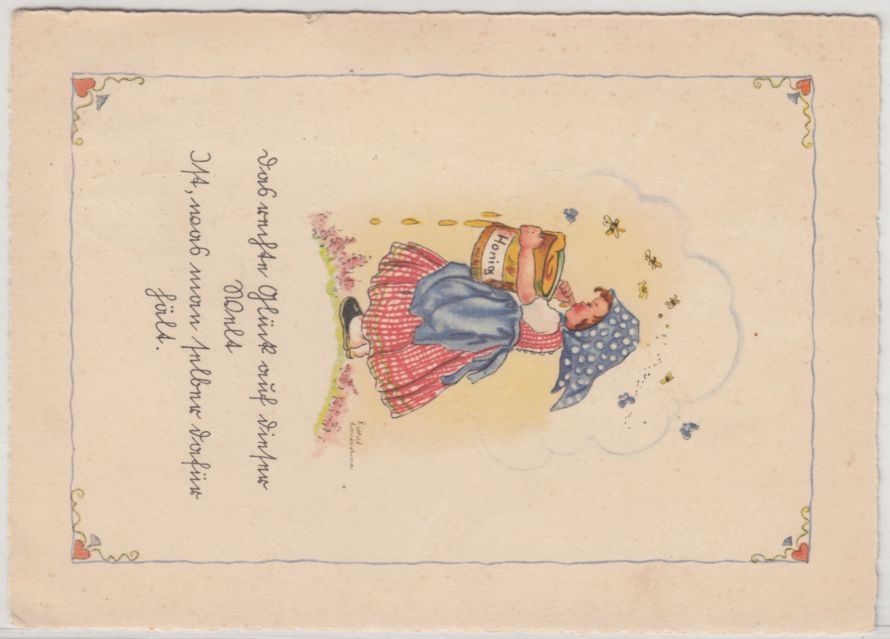 Honig
Das rechte Glück auf dieser
Welt
Ist, was man selber dafür
hält.